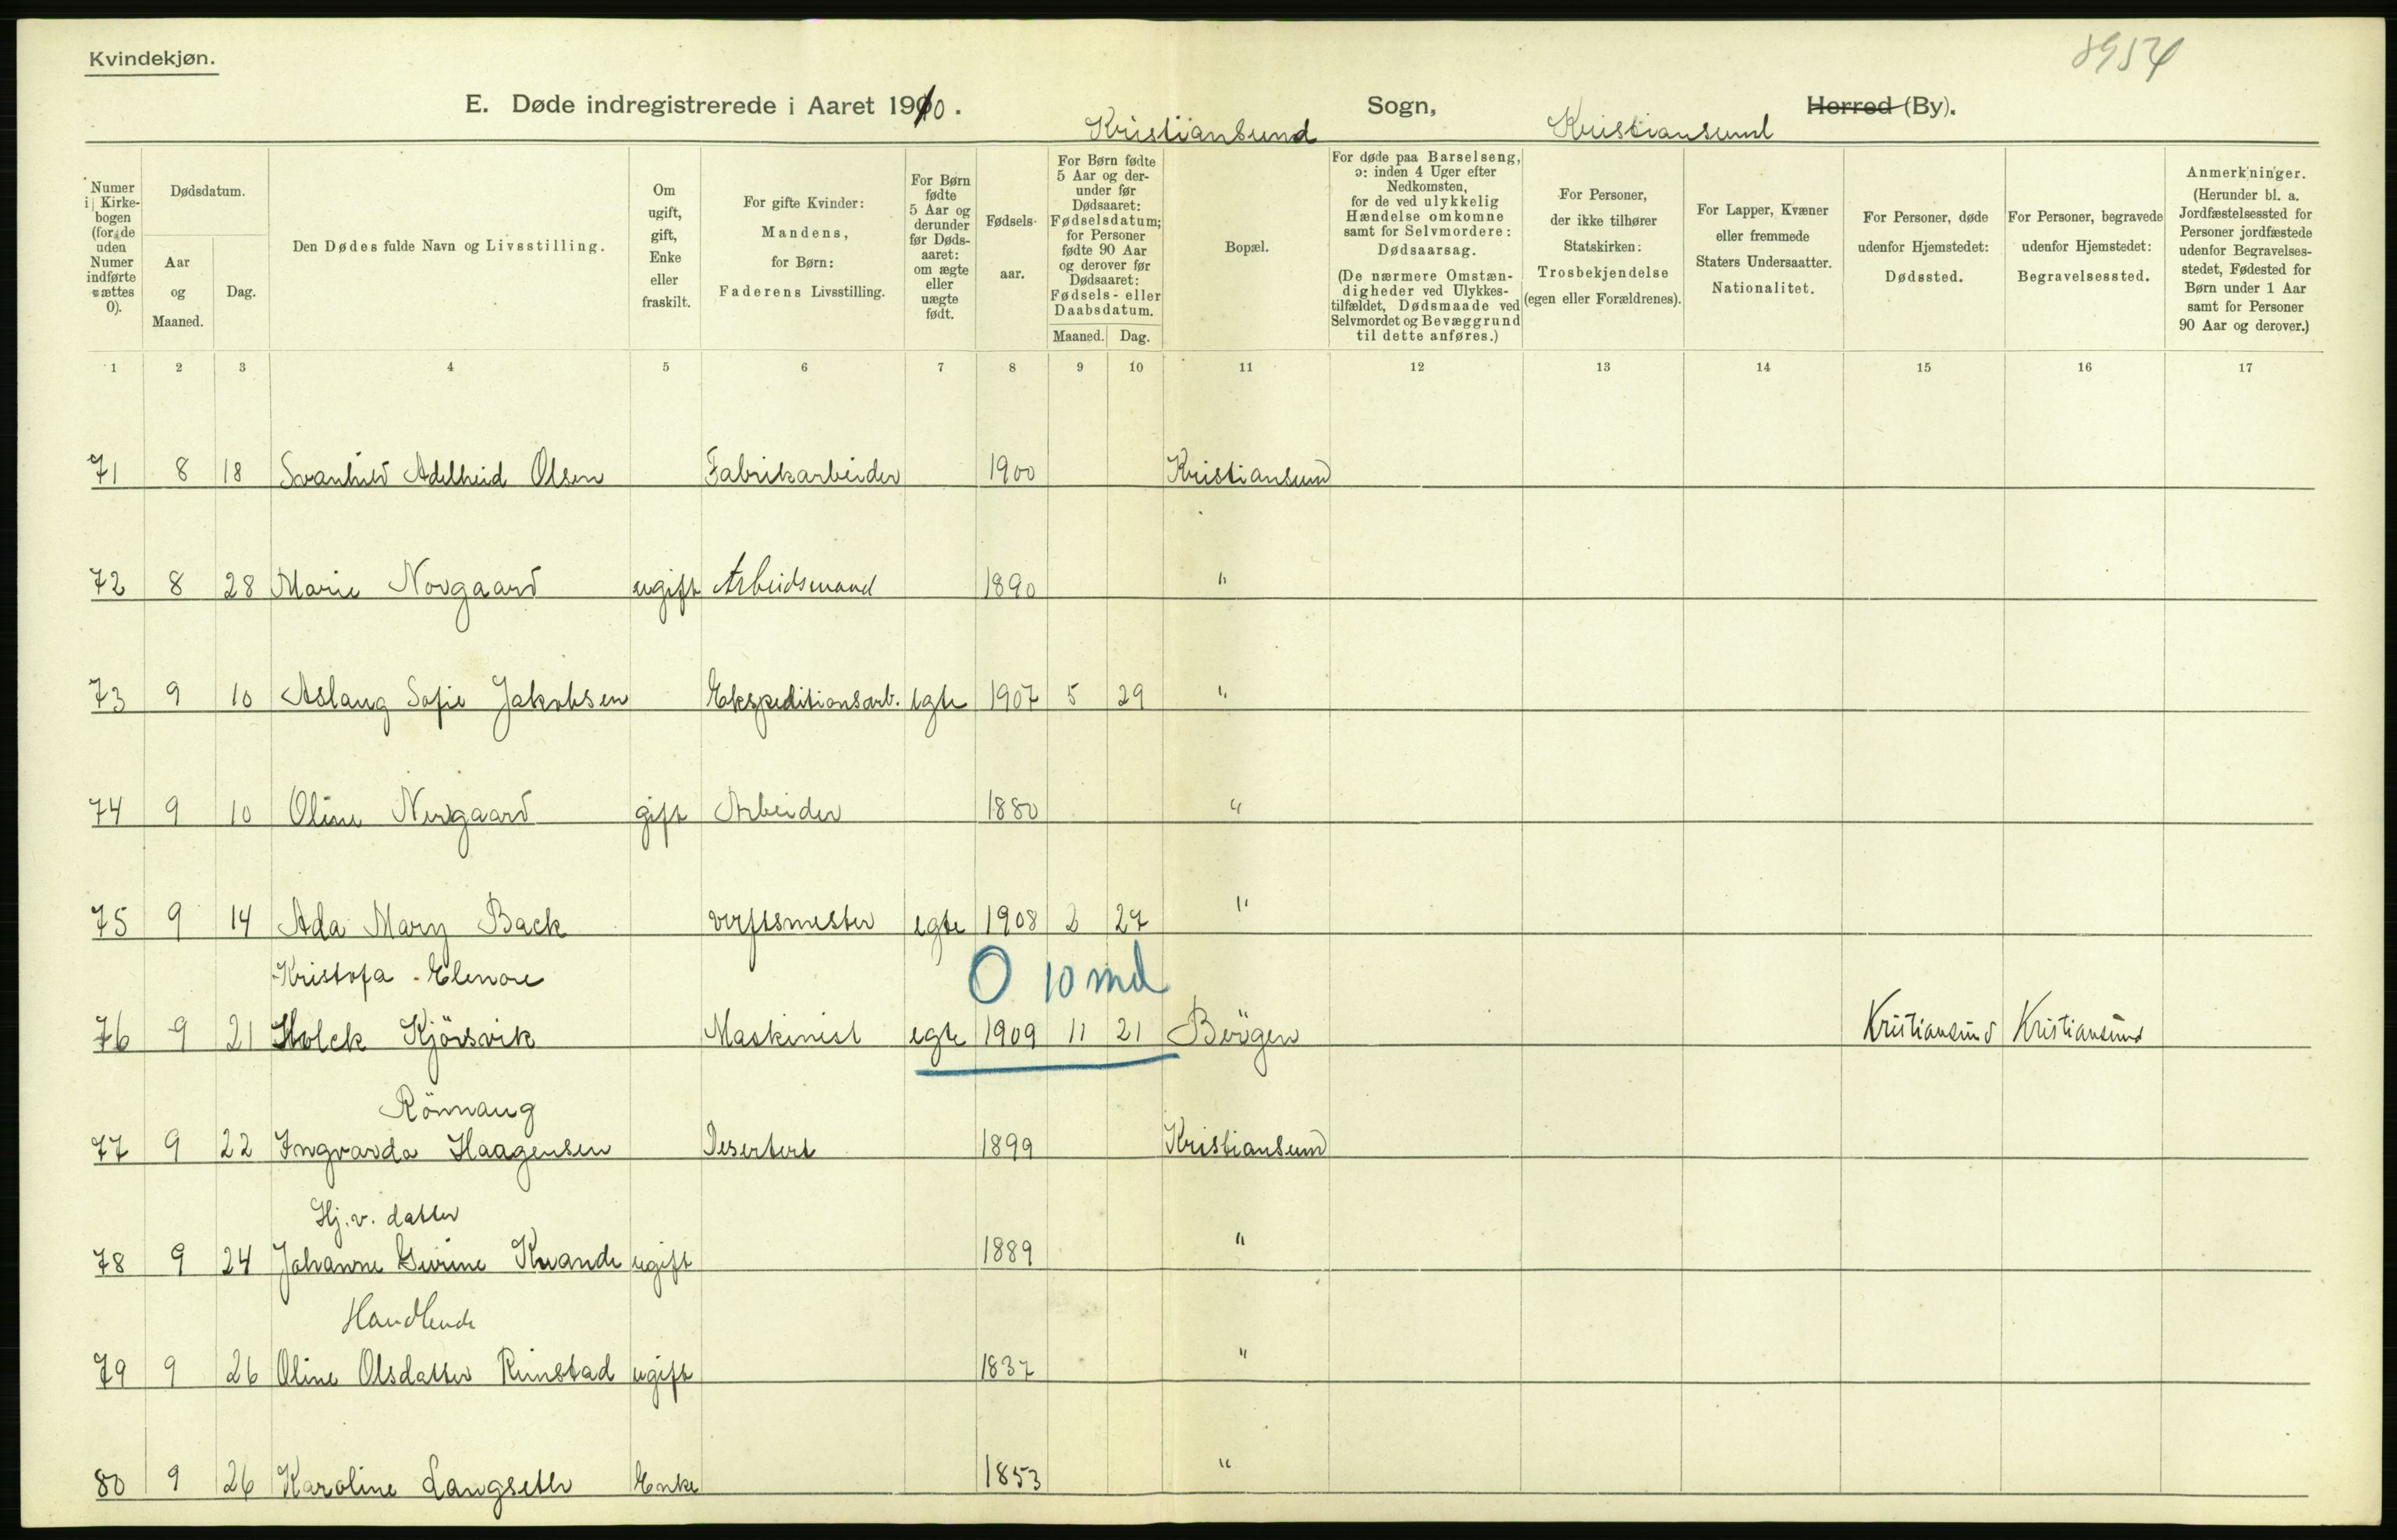 Kvindekjøn.
8954
E. Døde indregistrerede i Aaret 1910. Kristiansund Sogn, Kristiansund Herred (By).
Numer i Kirkebogen (for de uden Numer indførte sættes 0).
Dødsdatum.
Aar og Maaned.
Dag.
Den Dødes fulde Navn og Livsstilling.
Om ugift, gift, Enke eller fraskilt.
For gifte Kvinder: Mandens, for Børn: Faderens Livsstilling.
For Børn fødte 5 Aar og derunder før Dødsaaret: om ægte eller uægte født.
Fødselsaar.
For Børn fødte 5 Aar og derunder før Dødsaaret: Fødselsdatum; for Personer fødte 90 Aar og derover før Dødsaaret: Fødsels- eller Daabsdatum.
Maaned. Dag.
Bopæl.
For døde paa Barselseng, ɔ: inden 4 Uger efter Nedkomsten, for de ved ulykkelig Hændelse omkomne samt for Selvmordere: Dødsaarsag.
(De nærmere Omstændigheder ved Ulykkestilfældet, Dødsmaade ved Selvmordet og Bevæggrund til dette anføres.)
For Personer, der ikke tilhører Statskirken: Trosbekjendelse (egen eller Forældrenes).
For Lapper, Kvæner eller fremmede Staters Undersaatter. Nationalitet.
For Personer, døde udenfor Hjemstedet: Dødssted.
For Personer, begravede udenfor Hjemstedet: Begravelsessted.
Anmerkninger.
(Herunder bl. a. Jordfæstelsessted for Personer jordfæstede udenfor Begravelsesstedet, Fødested for Børn under 1 Aar samt for Personer 90 Aar og derover.)
1 2 3 4 5 6 7 8 9 10 11 12 13 14 15 16 17
71 8 18 Svanhild Adelheid Olsen Fabrikarbeider 1900 Kristiansund
72 8 28 Marie Norgaard ugift Arbeidsmand 1890 "
73 9 10 Aslaug Sofie Jakobsen Ekspeditionsarb. egte 1907 5 29 "
74 9 10 Oline Nergaard gift Arbeider 1880 "
75 9 14 Ada Mary Back verftsmester egte 1908 2 27 "
Kristofa Elenore O 10 md
76 9 21 Holck Kjörsvik Maskinist egte 1909 11 21 Bergen Kristiansund Kristiansund
Rönnaug
77 9 22 Ingvarda Haagensen Desertert 1899 Kristiansund
Hj. v. datter
78 9 24 Johanne Gurine Kvande ugift 1889 "
Handlende
79 9 26 Oline Olsdatter Rimstad ugift 1837 "
80 9 26 Karoline Langseth Enke 1853 "